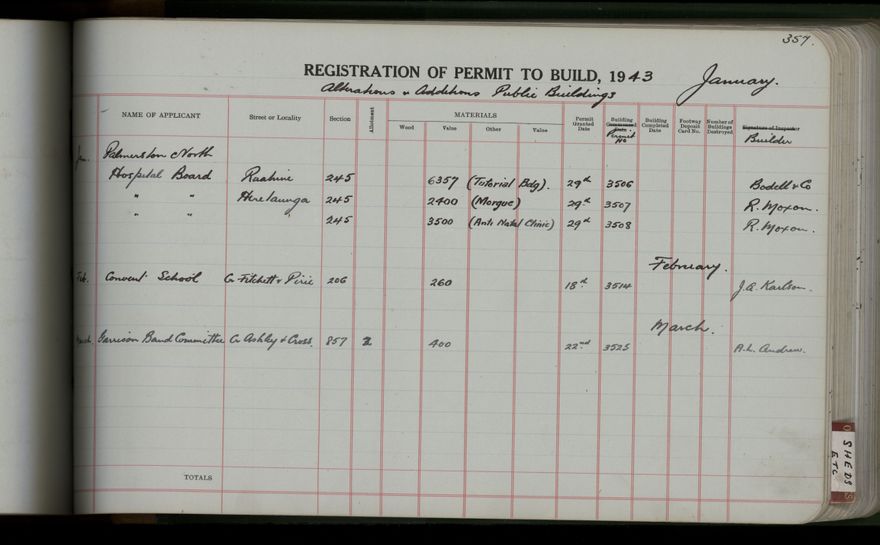 357.
REGISTRATION OF PERMIT TO BUILD, 1943 January.
Alterations & Additions Public Buildings
NAME OF APPLICANT Street or Locality Section Allotment MATERIALS Wood Value Other Value Permit Granted Date Building Commenced Date Permit No Building Completed Date Footway Deposit Card No. Number of Buildings Destroyed Signature of Inspector Builder
Jan. Palmerston North
Hospital Board Ruahine 245 6357 (Tutorial Bdg). 29th 3506 Bodell & Co
" " Heretaunga 245 2400 (Morgue) 29th 3507 R. Moxon.
" " 245 3500 (Anti Natal Clinic) 29th 3508 R. Moxon.
February.
Feb. Convent School Cr Fitchett & Pirie 206 260 18th 3514 J.A. Karlson.
March.
March. Garrison Band Committee Cr Ashley & Cross. 857 2 400 22nd 3525 A.L. Andrew.
TOTALS
SHEDS
ETC